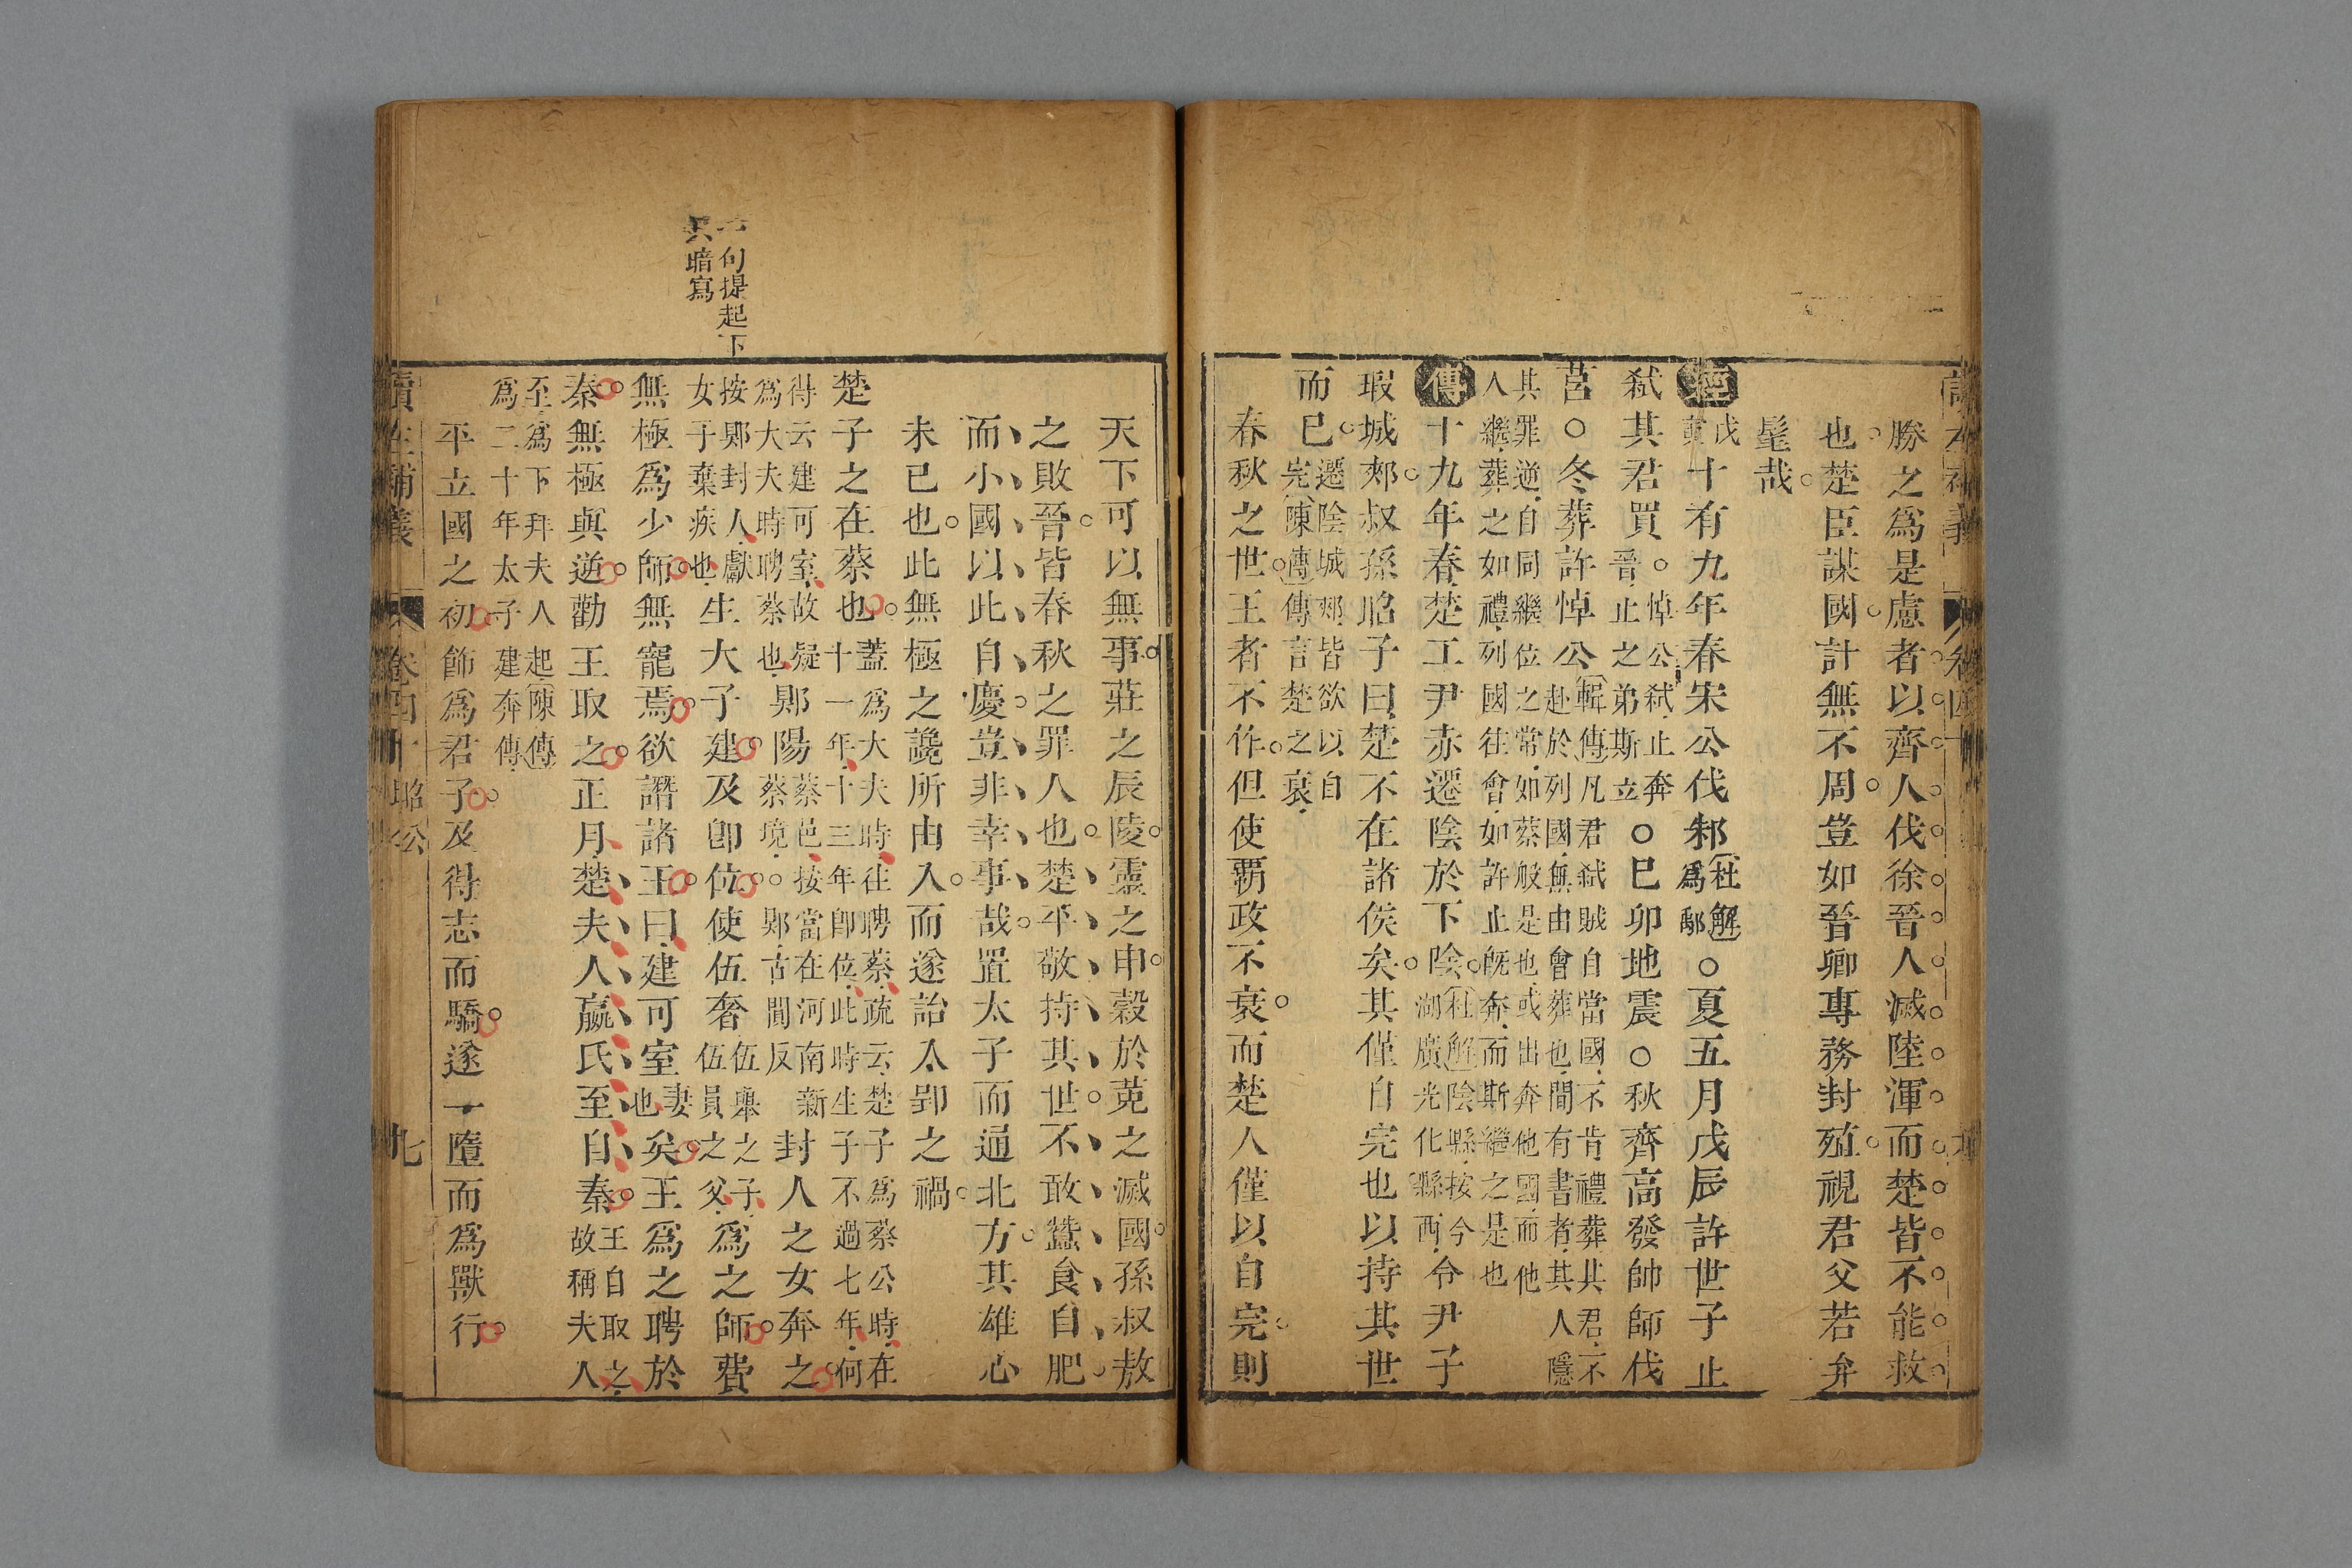 勝之爲是慮者以齊人伐徐晉人滅陸渾而楚皆不能救
也楚臣謀國計無不周豈如晉卿專務封殖視君父若弁
髦哉
經戊寅十有九年春宋公伐邾杜解爲鄅○夏五月戊辰許世子止
弑其君買悼公弑止奔晉止之弟斯立○己卯地震○秋齊高發帥師伐
莒○冬葬許悼公輯傳凡君弑賊自當國不肯禮葬其君不
赴於列國無由會葬也間有書者其人隱
其罪逆自同繼位之常如蔡般是也或出奔他國而他
人繼葬之如禮列國往會如許止旣奔而斯繼之是也
傳十九年春楚工尹赤遷陰於下陰杜解陰縣按今湖廣光化縣西令尹子
瑕城郟叔孫昭子曰楚不在諸侯矣其僅自完也以持其世
而已遷陰城郟皆欲以自完陳傳傳言楚之衰
春秋之世王者不作但使覇政不衰而楚人僅以自完則
天下可以無事莊之辰陵靈之申穀於莵之滅國孫叔敖
之敗晉皆春秋之罪人也楚平敬持其世不敢蠶食自肥
而小國以此自慶豈非幸事哉置太子而通北方其雄心
未已也此無極之讒所由入而遂詒太郢之禍
楚子之在蔡也蓋爲大夫時往聘蔡疏云楚子爲蔡公時在
十一年十三年卽位此時生子不過七年何
得云建可室故疑蔡邑按當在河南新
爲大夫時聘蔡也郹陽蔡境郹古闃反封人之女奔之
按郹封人獻
女于棄疾也生大子建及卽位使伍奢伍舉之子伍員之父爲之師費
無極爲少師無寵焉欲譖諸王曰建可室妻也矣王爲之聘於
秦無極與逆勸王取之正月楚夫人嬴氏至自秦王自取之故稱夫人
至爲下拜夫人起陳傳
爲二十年太子建奔傳
平立國之初飾爲君子及得志而驕遂一墮而爲獸行
句提起下
暗寫
讀左補義
卷四十
昭公
七